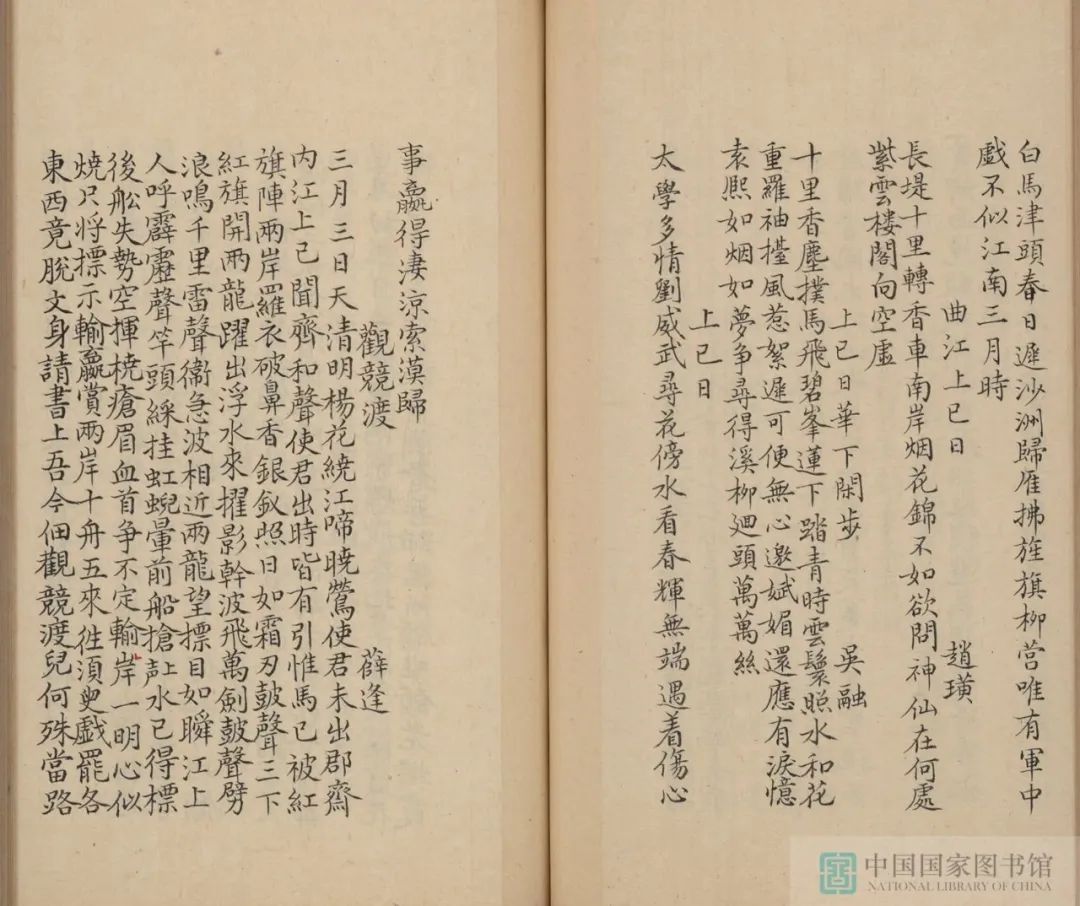 白馬津頭春日遲沙洲歸雁拂旌旗柳営唯有軍中
戲不似江南三月時
曲江上巳日　趙璜
長堤十里轉香車南岸烟花錦不如欲問神仙在何處
紫雲樓閣向空虛
上巳日華下閑步　吳融
十里香塵撲馬飛碧峯蓮下踏青時雲鬟照水和花
重羅袖擡風惹絮遲可便無心邀娬媚還應有淚憶
袁熙如烟如夢争尋得溪柳迴頭萬萬絲
上巳日
太學多情劉威武尋花傍水看春輝無端遇着傷心
事贏得淒涼索漠歸
觀競渡　薛逢
三月三日天清明楊花繞江啼曉鶯使君未出郡齋
内江上已聞齊和聲使君出時皆有引惟馬已被紅
旗陣兩岸羅衣破鼻香銀釵照日如霜刃皷聲三下
紅旗開兩龍躍出浮水來擢影幹波飛萬劍皷聲劈
浪鳴千里雷聲衞急波相近兩龍望標目如瞬江上
人呼霹靂聲竿頭綵挂虹蜺暈前船搶上水已得標
後舩失勢空揮橈瘡眉血首争不定輸岸一明心似
燒只將標示輸贏賞兩岸十舟五來徃湏臾戲罷各
東西竟脫文身請書上吾今佃觀競渡兒何殊當路
中国国家图书馆
NATIONAL LIBRARY OF CHINA